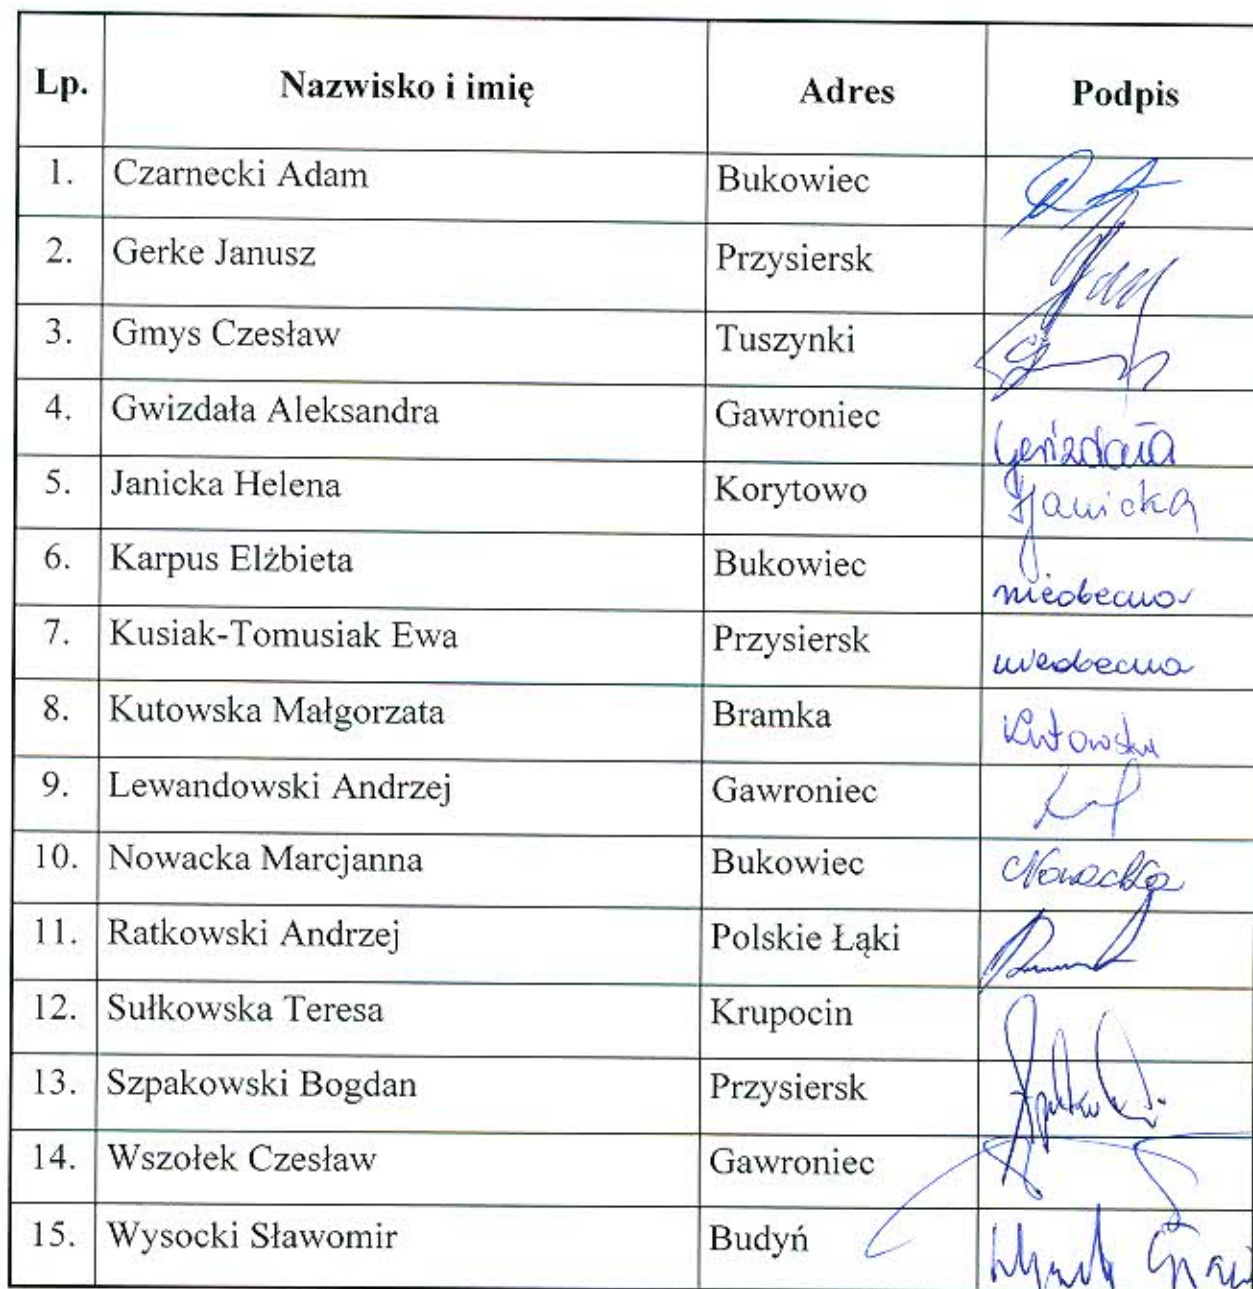 Lp. Nazwisko i imię Adres Podpis
1. Czarnecki Adam Bukowiec
2. Gerke Janusz Przysiersk
3. Gmys Czesław Tuszynki
4. Gwizdała Aleksandra Gawroniec Gwizdała
5. Janicka Helena Korytowo HJanicka
6. Karpus Elżbieta Bukowiec nieobecna
7. Kusiak-Tomusiak Ewa Przysiersk nieobecna
8. Kutowska Małgorzata Bramka Kutowska
9. Lewandowski Andrzej Gawroniec
10. Nowacka Marcjanna Bukowiec Nowacka
11. Ratkowski Andrzej Polskie Łąki
12. Sułkowska Teresa Krupocin
13. Szpakowski Bogdan Przysiersk
14. Wszołek Czesław Gawroniec
15. Wysocki Sławomir Budyń